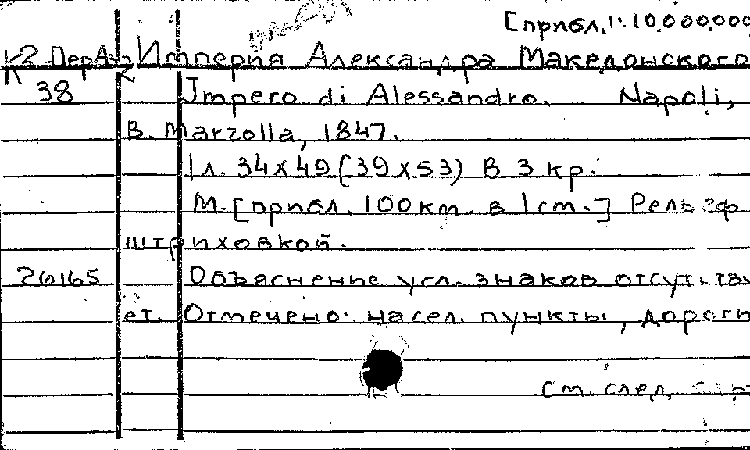 [прибл. 1:10.000.000
К2 ПерА2 Империя Александра Македонского
38 Impero di Alessandro. Napoli,
B. Marzolla, 1847.
1 л. 34х49 (39х53) В 3 кр.
М. [прибл. 100км. в 1см.] Рельеф
штриховкой.
26165 Объяснение усл. знаков отсутству
ет. Отмечено: насел. пункты, дороги
См. след.